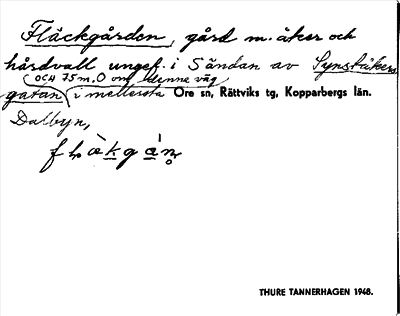 Fläckgården, gård m. åker och
hårdvall ungef. i Sändan av Synståkers
(och 75 m. O om denna väg)
gatan i mellersta Ore sn, Rättviks tg, Kopparbergs län.
Dalbyn,
THURE TANNERHAGEN 1948.